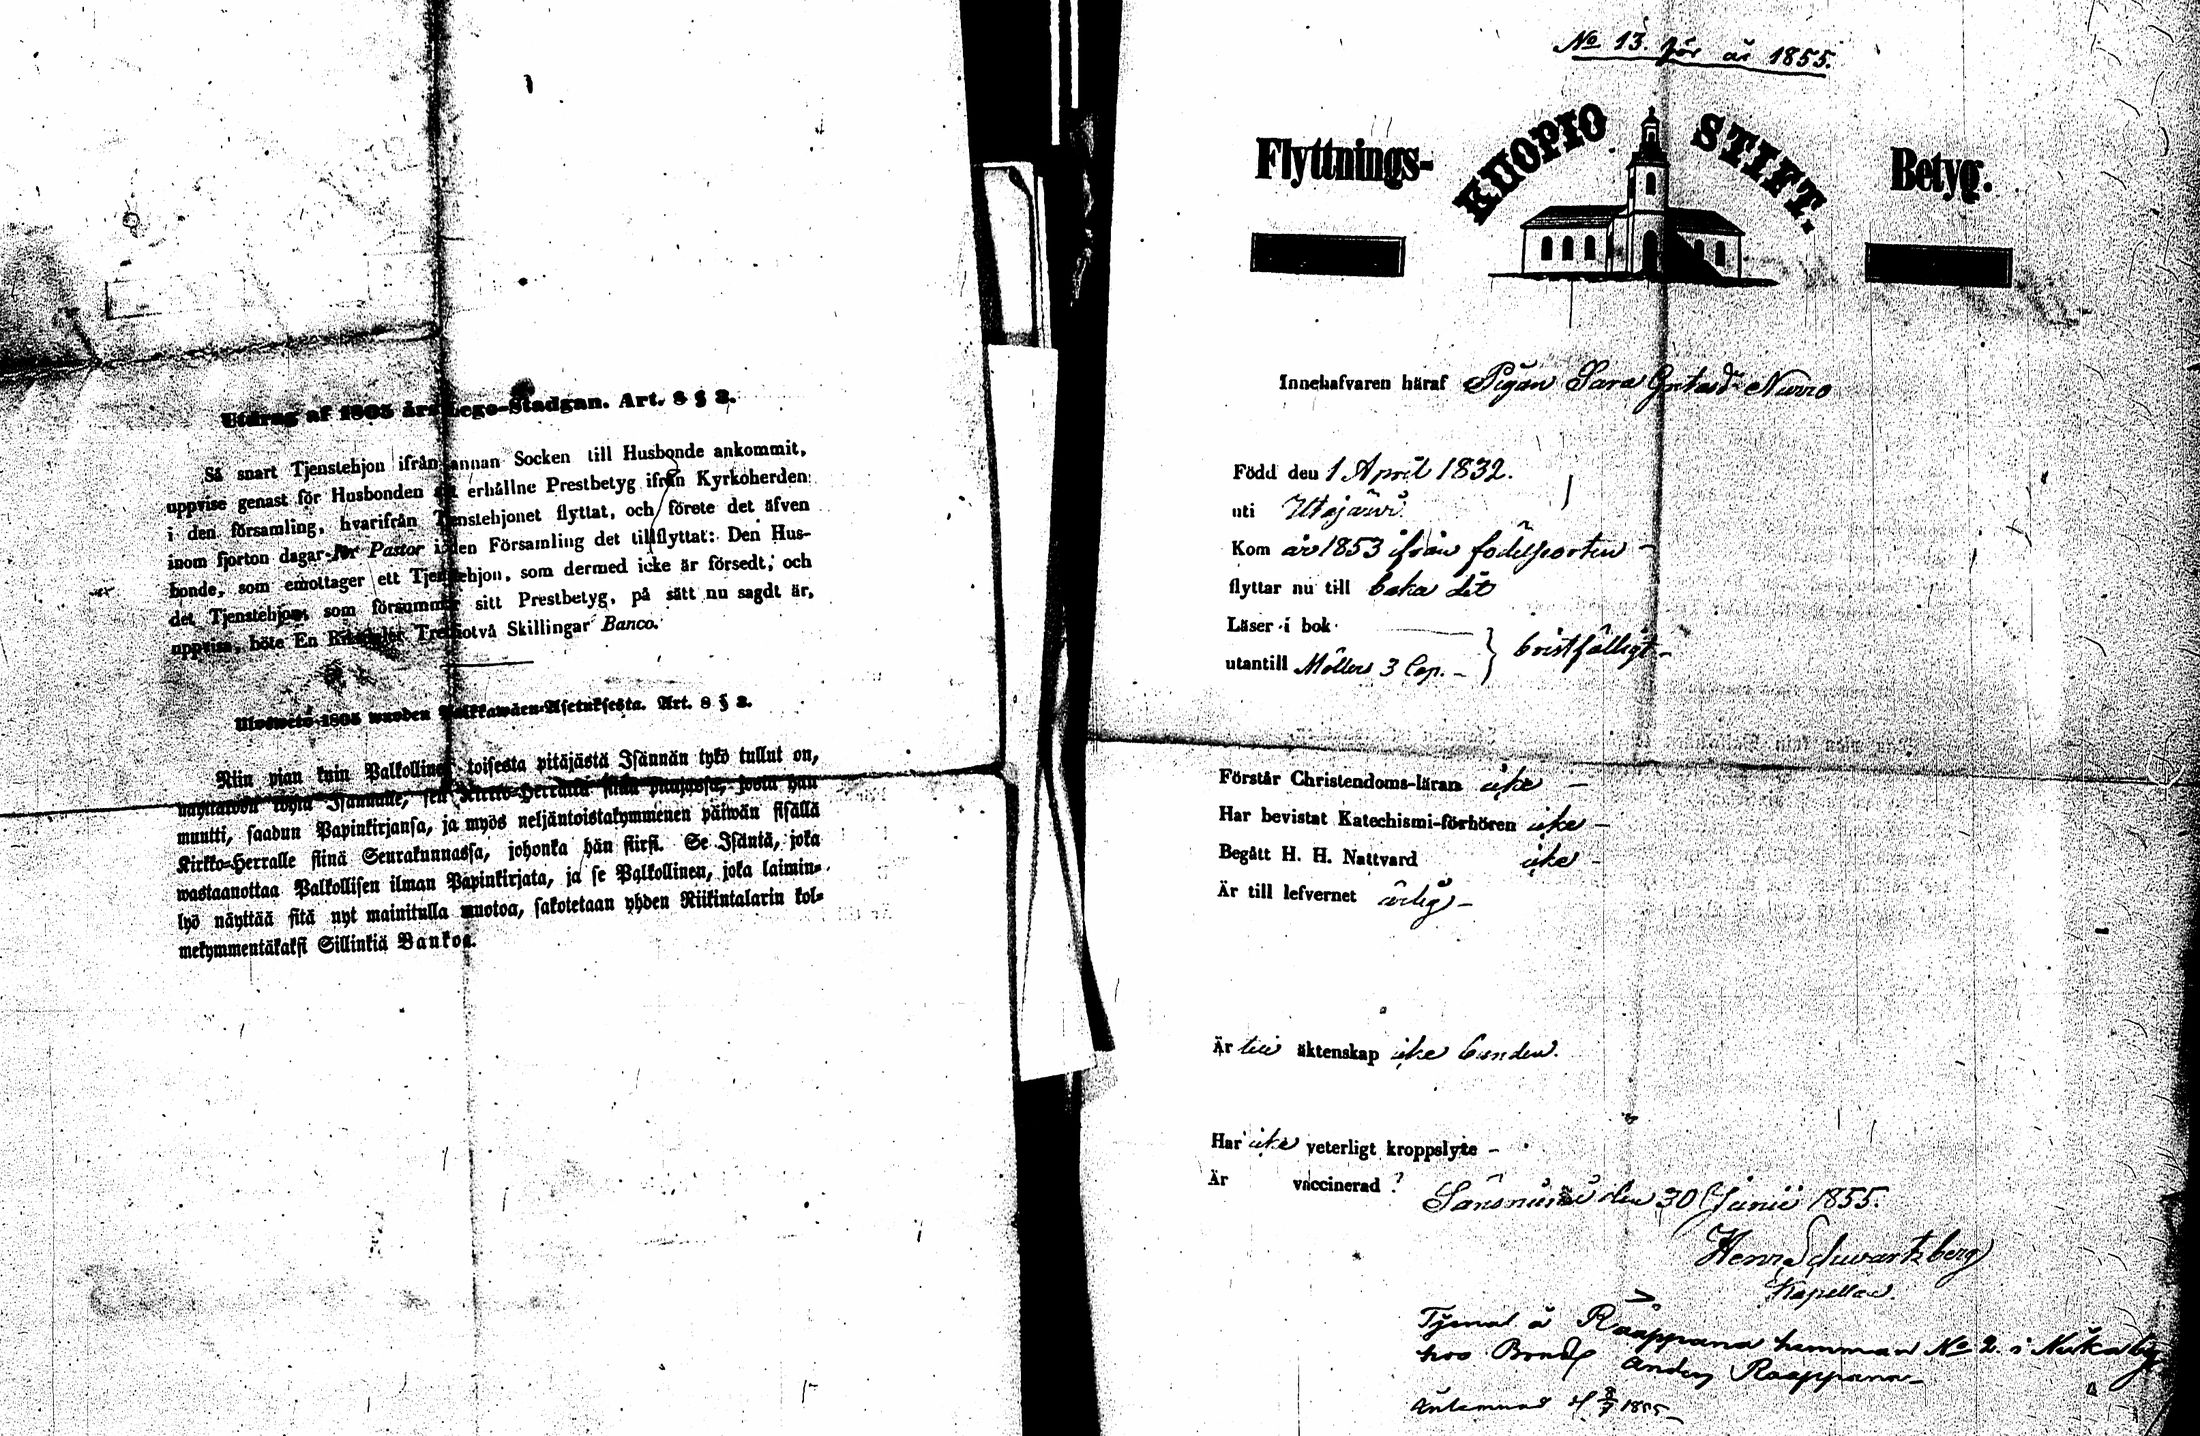 Utdrag af 1805 års Lego-Stadgan. Art. 8 § 2.
Så snart Tjenstehjon ifrån annan Socken till Husbonde ankommit,
uppvise genast för Husbonden erhållne Prestbetyg ifrån Kyrkoherden
i den församling, hvarifrån Tjenstehjonet flyttat, och förete det äfven
inom fjorton dagar för Pastor i den Församling det tillflyttat: Den Hus-
bonde, som emottager ett Tjenstehjon, som dermed icke är försedt, och
det Tjenstehjon, som försummar sitt Prestbetyg, på sätt nu sagdt är,
uppvisa, böte En Riksdaler Trettiotvå Skillingar Banco.
Ulosweto 1805 wuoden Palkkawäen-Asetuksesta. Art. 8 § 2.
Niin pian kuin Palkollinen toisesta pitäjästä Isännän tykö tullut on,
näyttäköön kohta Isännälle, sen Kirkko-Herralta siinä pitäjässä, josta hän
muutti, saadun Papinkirjansa, ja myös neljäntoistakymmenen päiwän sisällä
Kirkko-Herralle siinä Seurakunnassa, johonka hän siirsi. Se Isäntä, joka
wastaanottaa Palkollisen ilman Papinkirjata, ja se Palkollinen, joka laimin-
lyö näyttää sitä nyt mainitulla muotoa, sakotetaan yhden Riikintalarin kol-
mekymmentäkaksi Sillinkiä Bankoa.
No 13. för år 1855.
Flyttnings- KUOPIO STIFT. Betyg.
Innehafvaren häraf Pigan Sara Gretasdr Nurro
Född den 1 April 1832.
uti Utajärvi
Kom år 1853 ifrån födelseorten -
flyttar nu till baka dit
Läser i bok
utantill Möllers 3 Cap. - } bristfälligt -
Förstår Christendoms-läran icke -
Har bevistat Katechismi-förhören icke -
Begått H. H. Nattvard icke -
Är till lefvernet ärlig -
Är till äktenskap icke bunden.
Har icke veterligt kroppslyte -
Är vaccinerad ?
den 30 Junii 1855.
Henr Schwartzberg
Kapellan.
Tjenat å Raappana hemman No 2 i by
hos Bond Anders Raappana -
1855 -